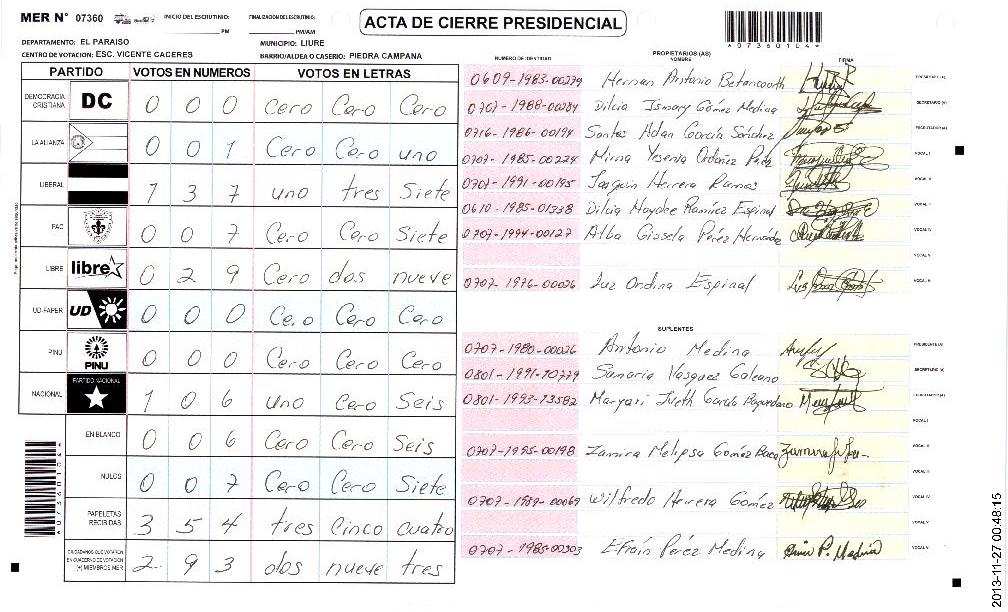 MER N° 07360 INICIO DEL ESCRUTINIO: PM FINALIZACION DEL ESCRUTINIO: PM/AM
ACTA DE CIERRE PRESIDENCIAL
*07360104*
DEPARTAMENTO: EL PARAISO MUNICIPIO: LIURE
CENTRO DE VOTACION: ESC. VICENTE CACERES BARRIO/ALDEA O CASERIO: PIEDRA CAMPANA
PARTIDO VOTOS EN NUMEROS VOTOS EN LETRAS
DEMOCRACIA CRISTIANA DC 0 0 0 Cero Cero Cero
LA ALIANZA 0 0 1 Cero Cero uno
LIBERAL 1 3 7 uno tres Siete
PAC 0 0 7 Cero Cero Siete
LIBRE libre 0 2 9 Cero dos nueve
UD-FAPER UD 0 0 0 Cero Cero Cero
PINU PINU 0 0 0 Cero Cero Cero
NACIONAL PARTIDO NACIONAL 1 0 6 uno Cero Seis
EN BLANCO 0 0 6 Cero Cero Seis
NULOS 0 0 7 Cero Cero Siete
PAPELETAS RECIBIDAS 3 5 4 tres Cinco cuatro
CIUDADANOS QUE VOTARON EN CUADERNO DE VOTACION (+) MIEMBROS MER 2 9 3 dos nueve tres
*07360104*
PROPIETARIOS (AS)
NUMERO DE IDENTIDAD NOMBRE FIRMA
0609-1983-00279 Hernan Antonio Betancourth PRESIDENTE (A)
0707-1988-00284 Dilcia Ismary Gómez Medina SECRETARIO (A)
0716-1986-00194 Santos Adan García Sánchez ESCRUTADOR (A)
0707-1985-00224 Mirna Yesenia Ordoñez Pérez VOCAL I
0707-1991-00195 Joaquin Herrera Ramos VOCAL II
0610-1985-01338 Dilcia Haydee Ramírez Espinal VOCAL III
0707-1994-00127 Alba Gissela Pérez Hernández VOCAL IV
VOCAL V
0707-1976-00026 Luz Ordina Espinal VOCAL VI
SUPLENTES
0707-1980-00026 Antonio Medina PRESIDENTE (A)
0801-1991-10779 Samaria Vasquez Galeano SECRETARIO (A)
0801-1993-13582 Maryari Iveth García ESCRUTADOR (A)
VOCAL I
0707-1995-00198 Zamira Melissa Gómez Baca VOCAL II
VOCAL III
0707-1989-00069 Wilfredo Herrera Gómez VOCAL IV
VOCAL V
0707-1985-00303 Efraín Pérez Medina VOCAL VI
2013-11-27 00:48:15